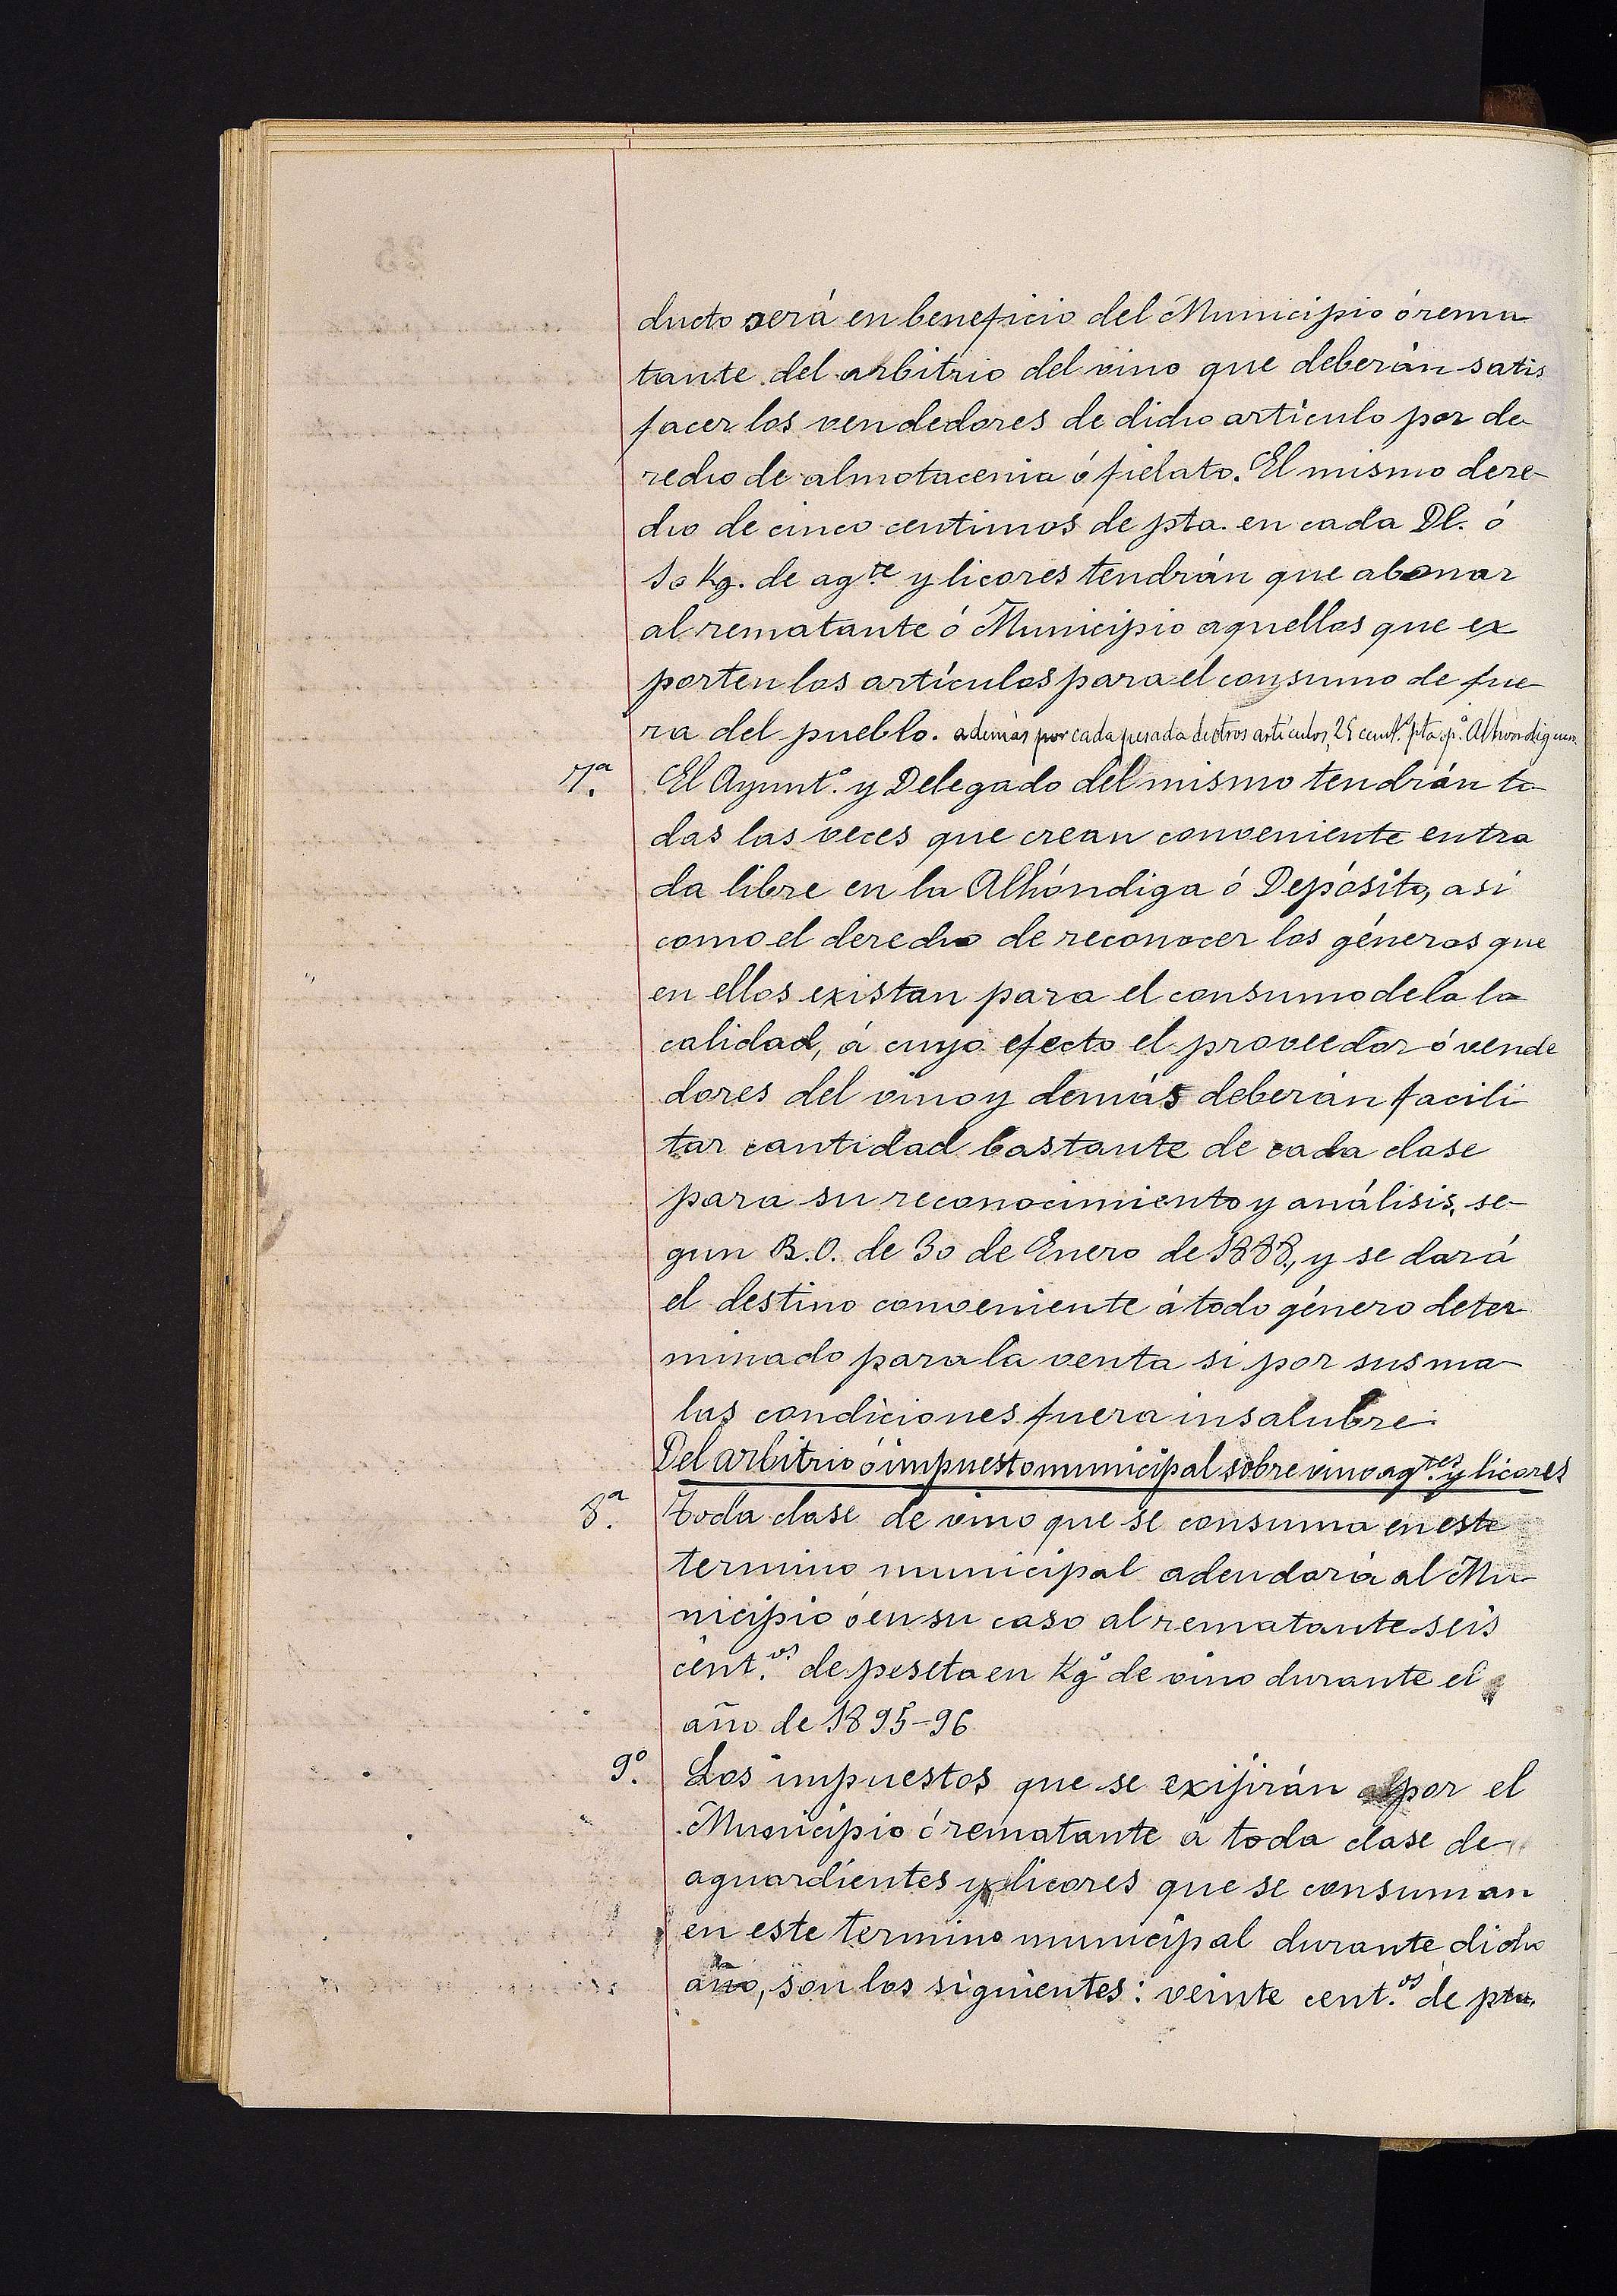 ducto será en beneficio del Municipio ó rema
tante del arbitrio del vino que deberán satis
facer los vendedores de dicho artículo por de
recho de almotacenia ó fielato. El mismo dere-
cho de cinco centimos de pta. en cada Dl. ó
10 Kg. de ag.te y licores tendrán que abonar
al rematante ó Municipio aquellos que ex
porten los artículos para el consumo de fue-
ra del pueblo. además por cada pesada de otros artículos, 25 cent.s pta. p.a Alhondiguero
7.a El Ayunt.o y Delegado del mismo tendrán to-
das las veces que crean conveniente entra
da libre en la Alhóndiga ó Depósito, asi
como el derecho de reconocer los géneros que
en ellos existan para el consumo de la lo
calidad, á cuyo efecto el proveedor ó vende
dores del vino y demás deberán facili
tar cantidad bastante de cada clase
para su reconocimiento y análisis, se-
gun R.O. de 30 de Enero de 1888., y se dará
el destino conveniente á todo género deter
minado para la venta si por sus ma-
las condiciones fuera insalubre.
Del arbitrio ó impuesto municipal sobre vino ag.tes y licores
8.a Toda clase de vino que se consuma en este
termino municipal adeudará al Mu-
nicipio ó en su caso al rematante seis
cent.os de peseta en Kg.o de vino durante el
año de 1895-96
9.o Los impuestos que se exijirán por el
Municipio ó rematante á toda clase de
aguardientes y licores que se consuman
en este termino municipal durante dicho
año, son los siguientes: veinte cent.os de pta.